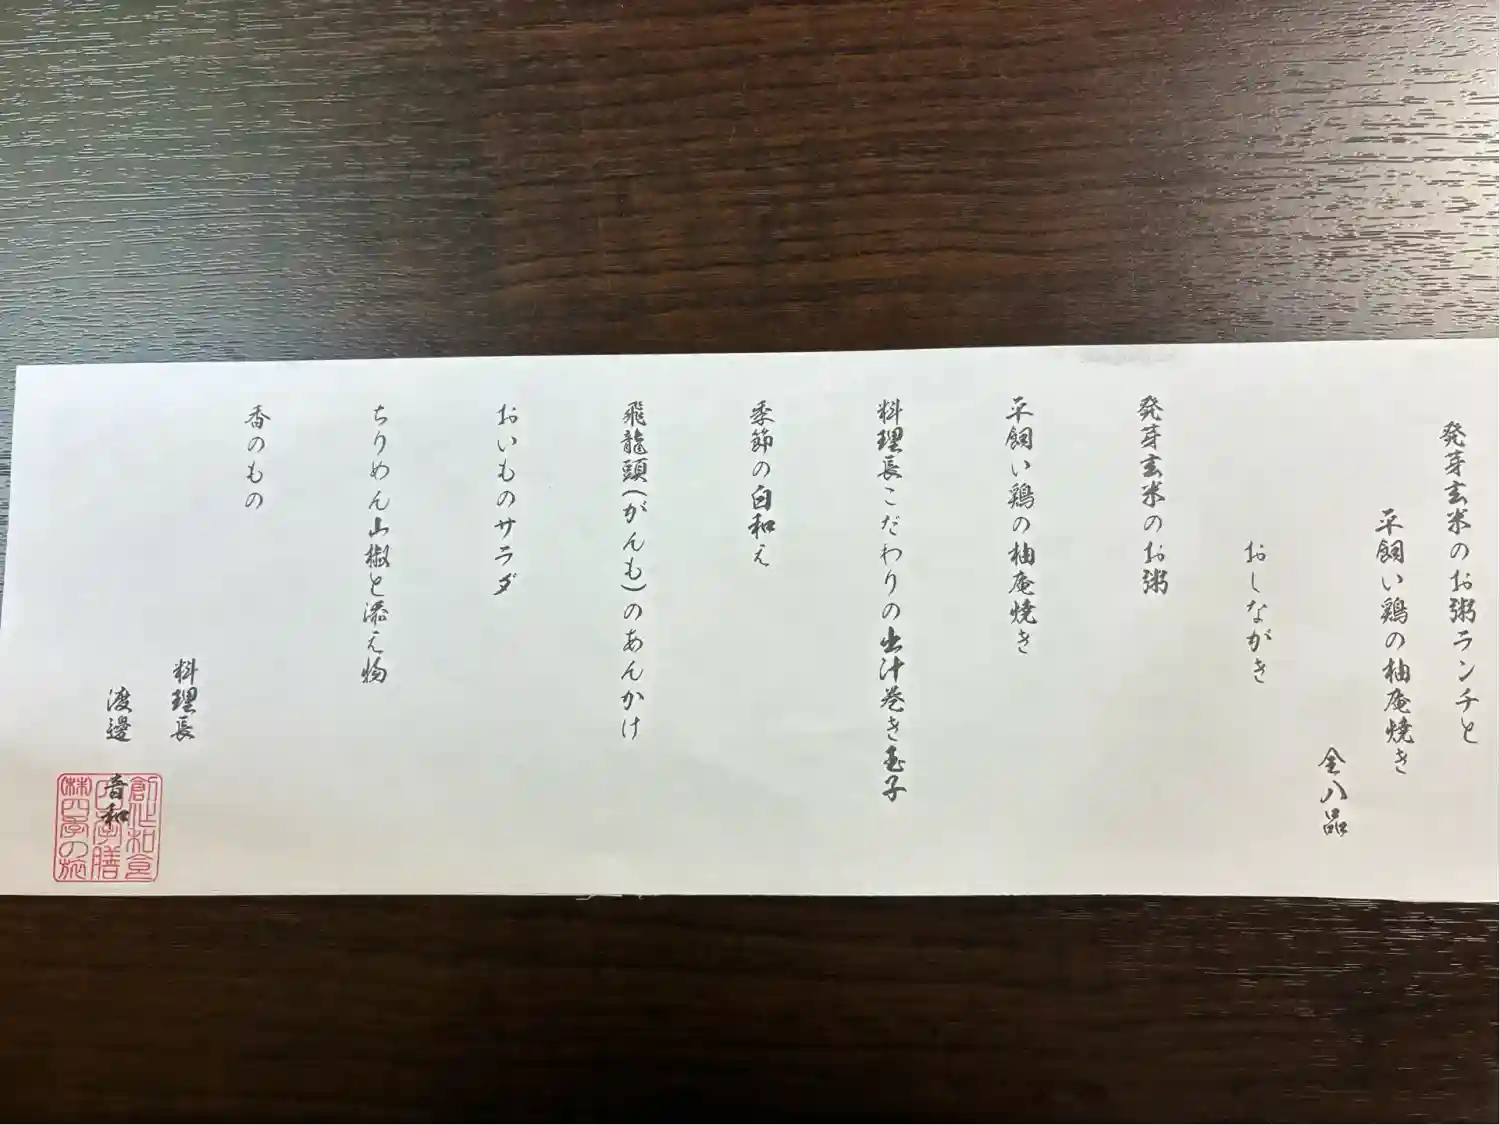 発芽玄米のお粥ランチと
平飼い鶏の柚庵焼き
全八品
おしながき
発芽玄米のお粥
平飼い鶏の柚庵焼き
料理長こだわりの出汁巻き玉子
季節の白和え
飛龍頭(がんも)のあんかけ
おいものサラダ
ちりめん山椒と添え物
香のもの
料理長
渡邊 音和